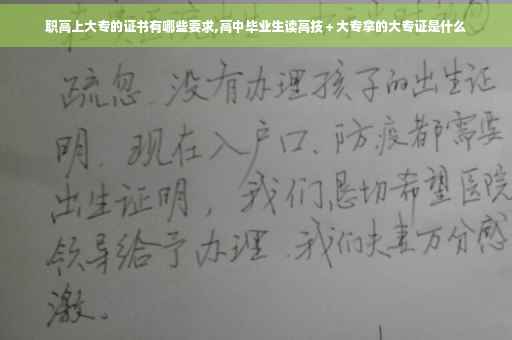 职高上大专的证书有哪些要求,高中毕业生读高技+大专拿的大专证是什么
疏忽、没有办理孩子的出生证
明。现在入户口、防疫都需要
出生证明，我们恳切希望医院
领导给予办理、我们夫妻万分感
激。